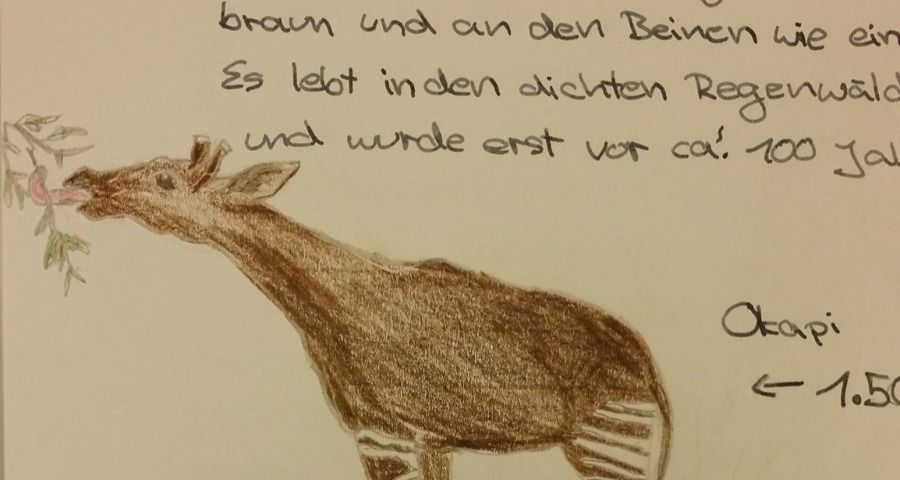 braun und an den Beinen wie ein
Es lebt in den dichten Regenwäld
und wurde erst vor ca. 100 Jah
Okapi
← 1.50